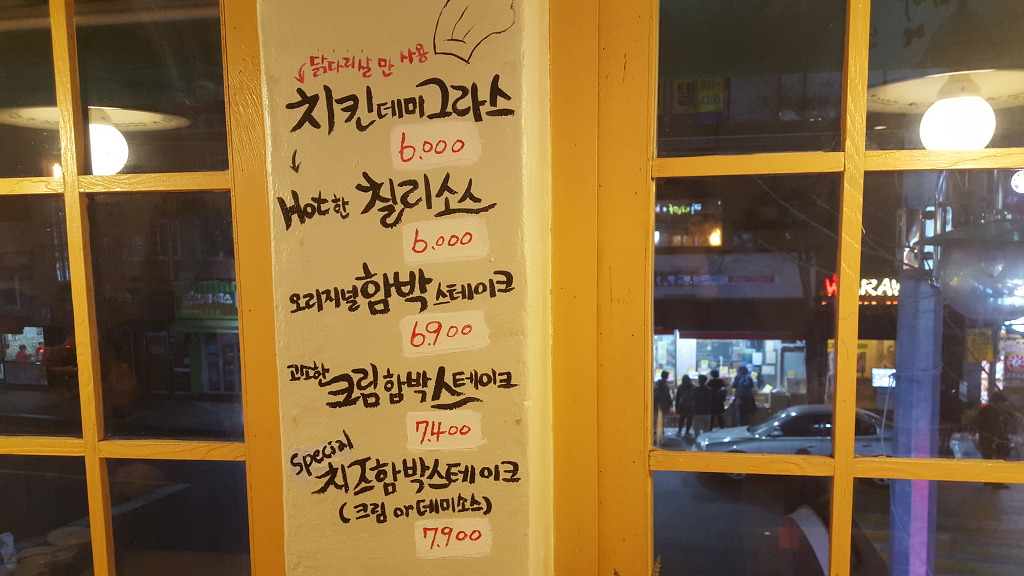 닭다리살 만 사용
치킨데미그라스
6.000
Hot한 칠리소스
6.000
오리지널함박스테이크
6.900
고소한
크림함박스테이크
7.400
Special
치즈함박스테이크
(크림 or 데미소스)
7.900